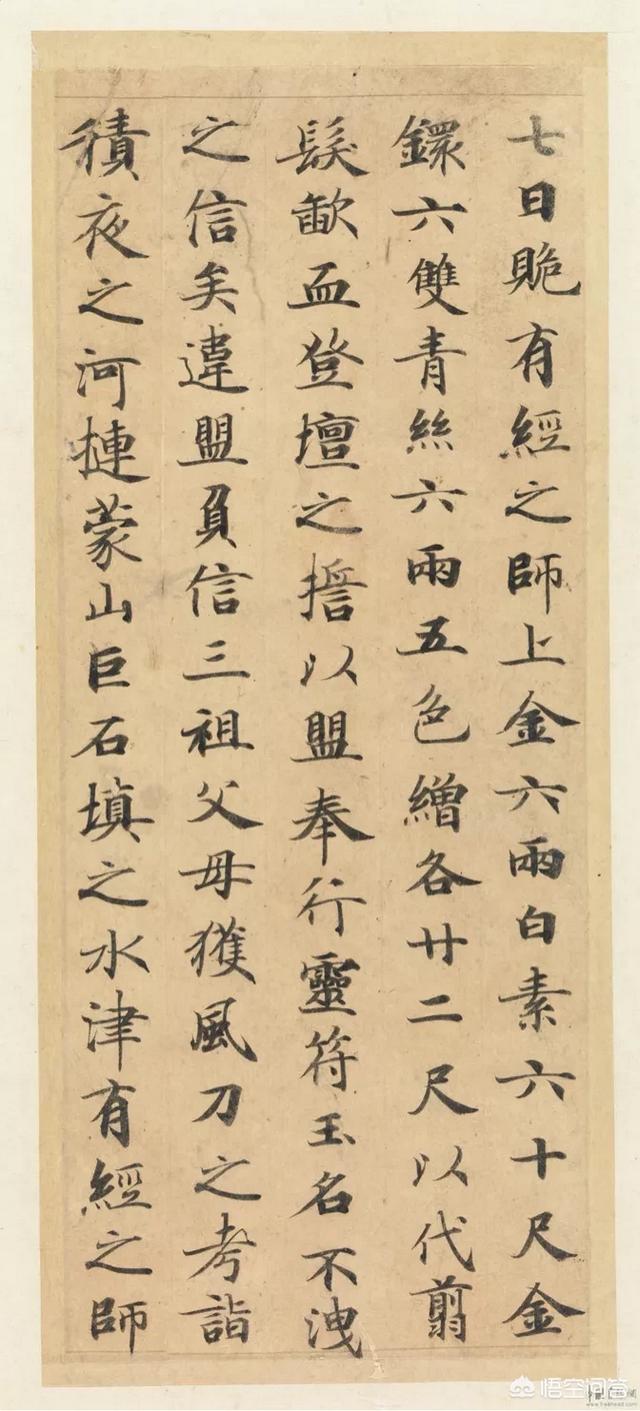 七日貹有經之師上金六兩白素六十尺金
鐶六雙青絲六兩五色繒各廿二尺以代翦
髮歃血登壇之誓以盟奉行靈符玉名不洩
之信矣違盟負信三祖父母獲風刀之考詣
積夜之河摙蒙山巨石填之水津有經之師
悟空问答